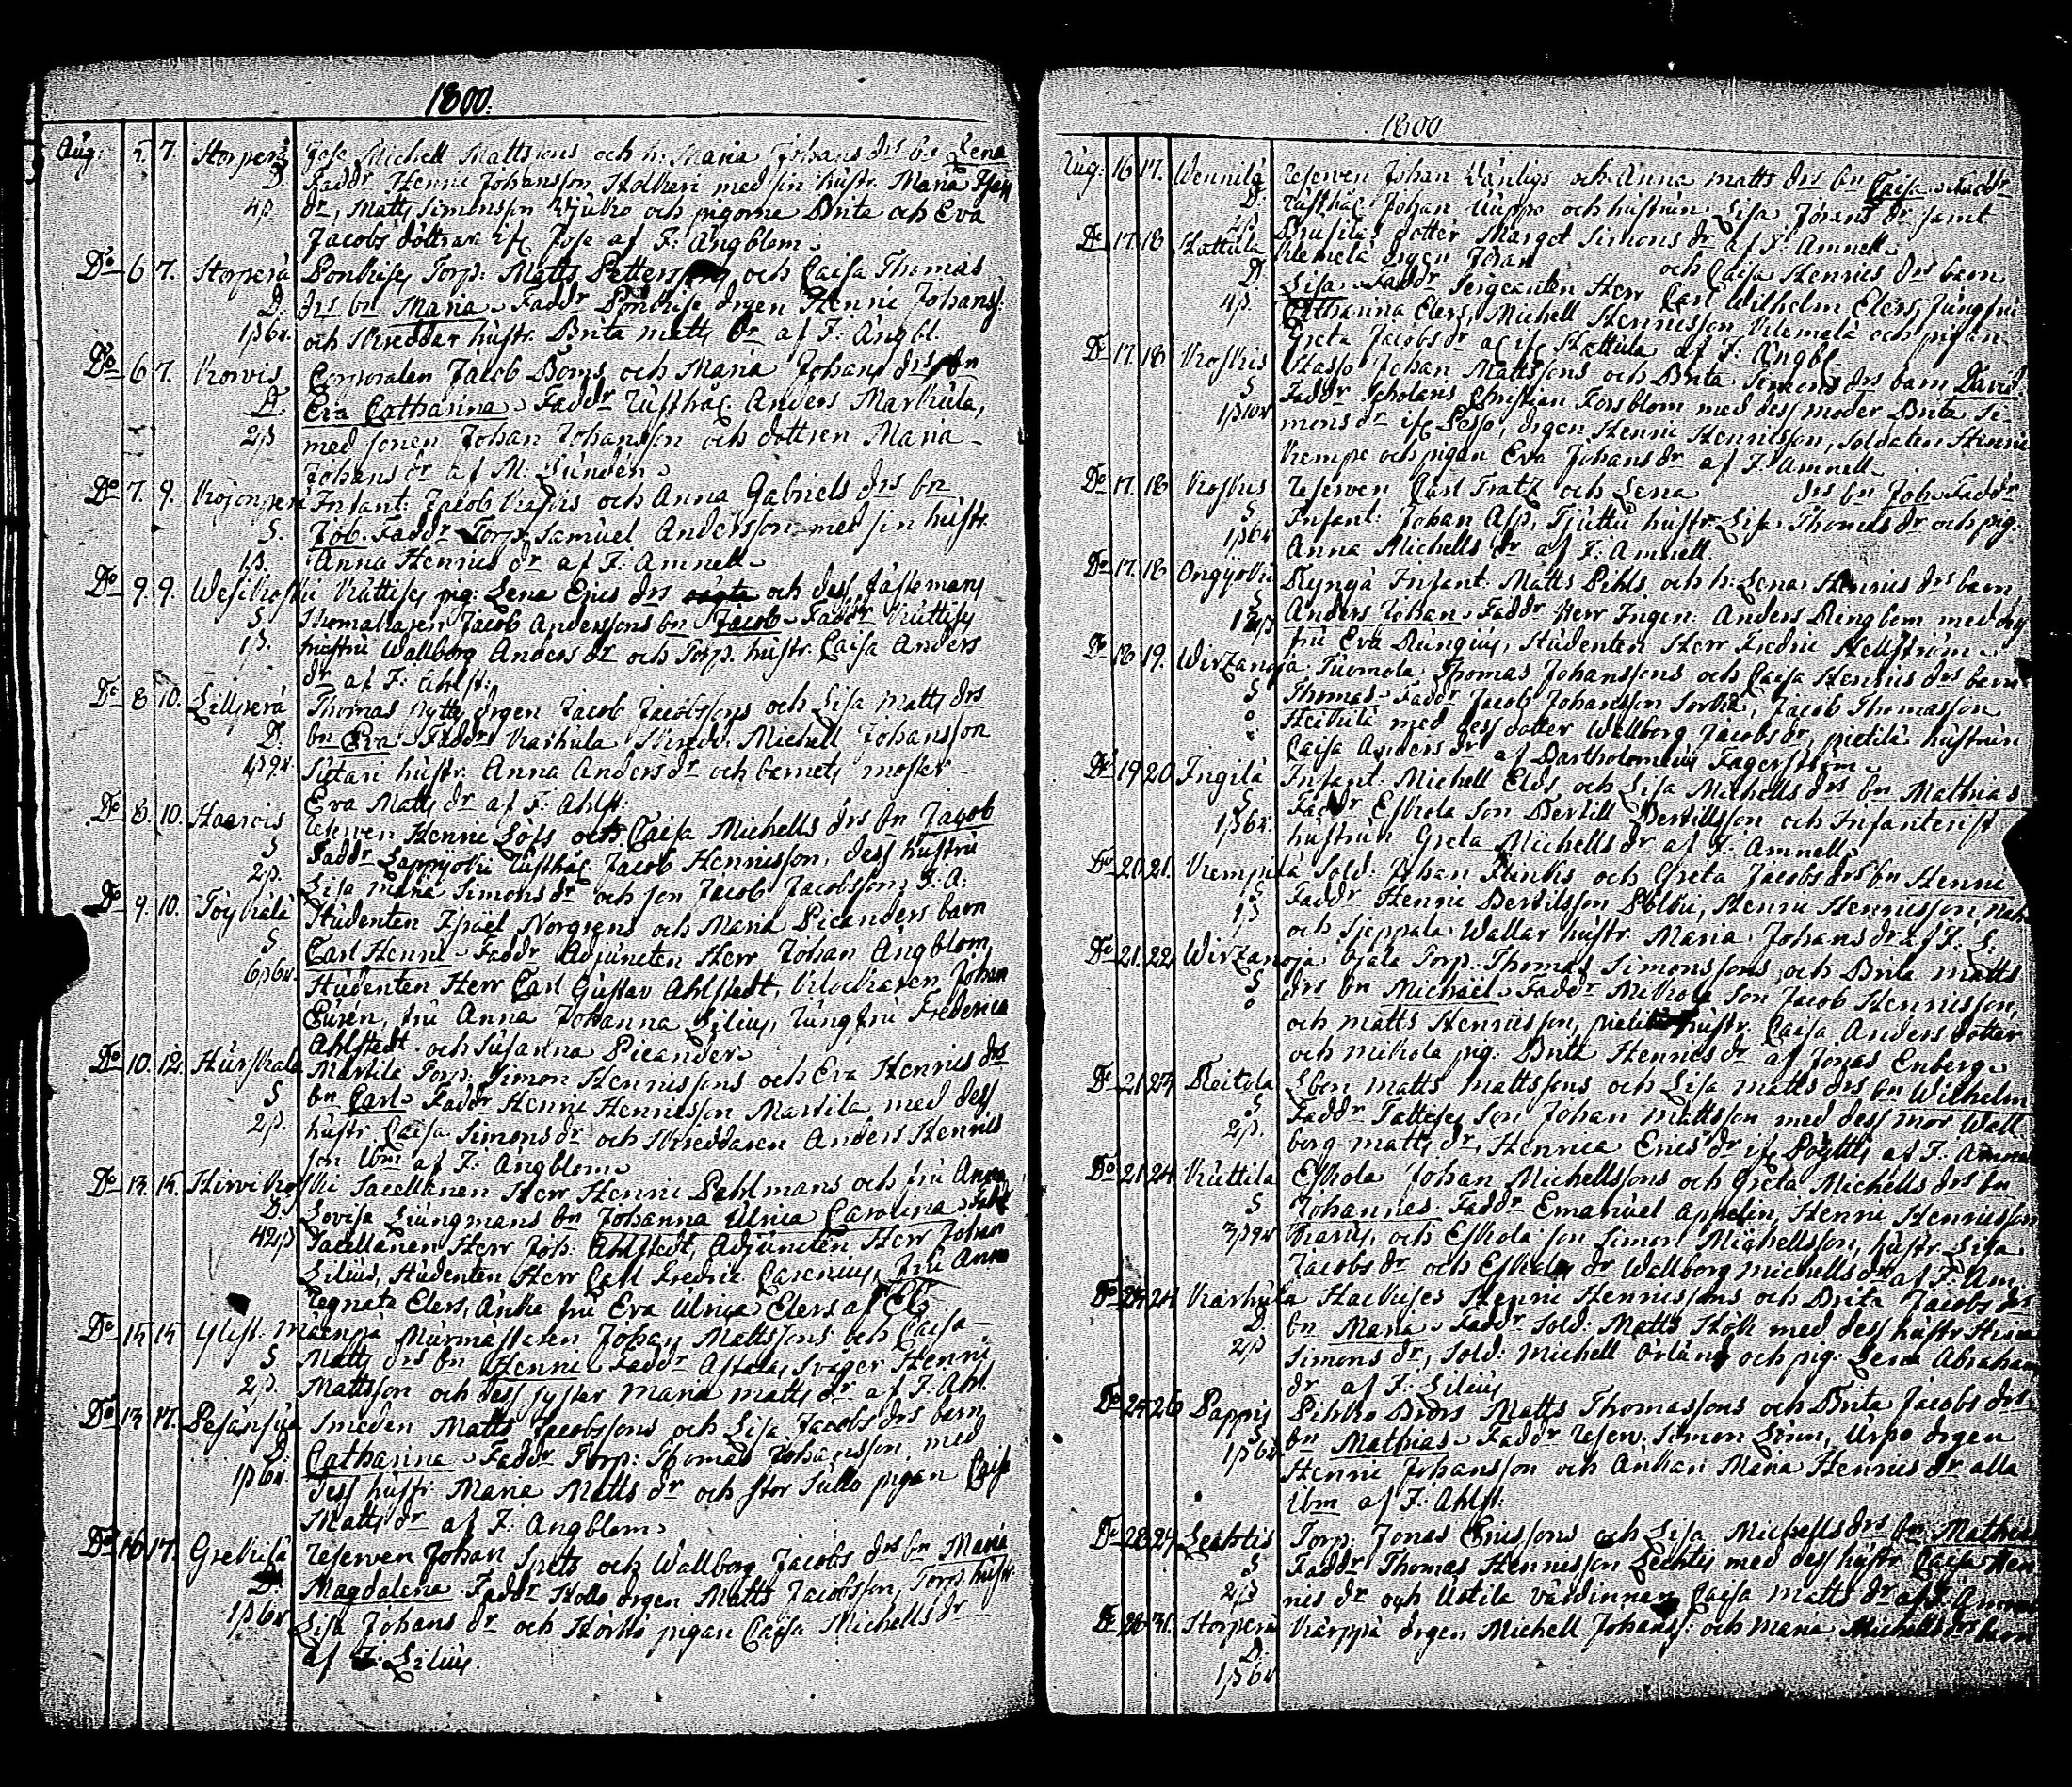 1800.
Aug: 5 7. Storperä Jose Michell Mattssons och h: Maria Johans drs bn Lena
D. Faddr Henric Johansson Stolkeri med sin hustr. Maria
4ß dr, Matts Simonsson och pigorne Brita och Eva
Jacobs döttrar if Jose af J: Ångblom
Do 6 7. Storperä Torp: Matts Petterss och Caisa Thomas
D. drs bn Maria. Faddr drgen Henric Johanss:
1ß6r. och Skreddar hustr. Brita Matts dr af J: Ångbl.
Do 6 7. Korvis Corporalen Jacob Boms och Maria Johans drs bn
D. Eva Catharina. Faddr Rusthål. Anders Markula,
2ß med sonen Johan Johansson och dottren Maria
Johans dr af M. Lundén
Do 7. 9. Kojonperä Infant: Jacob och Anna Gabriels drs bn
S. Job. Faddr Torp. Samuel Andersson med sin hustr.
1ß. Anna Henrics dr af J: Amnell
Do 9. 9. Wesikoski Kuttisef pig. Lena Erics drs och dess fästemans
S Jacob Anderssons bn Jacob. Faddr
1ß. hustru Wallborg Anders dr och Torp. hustr. Caisa Anders
dr af J: Ahlst:
Do 8 10. Lillperä Thomas drgen Jacob Jacobssons och Lisa Matts drs
D. bn Eva. Faddr Karhula Michell Johansson
4ß9r. Sutari hustr. Anna Anders dr och barnets moster
Eva Matts dr af J: Ahlst:
Do 8. 10. Haarois Reserven Henric Löfs och Caisa Michells drs bn Jacob
S Faddr Rusthål. Jacob Henricsson, dess hustru
2ß. Lisa Maria Simons dr och son Jacob Jacobsson J: A:
Do 9. 10. Töykälä Studenten Isräel Norgrens och Maria Picanders barn
S Carl Henric. Faddr Adjuncten Herr Johan Ångblom,
6ß6r. Studenten Herr Carl Gustav Ahlstedt, Klockaren Johan
Purén, fru Anna Johanna Lilius, Jungfru Frederica
Ahlstedt och Susanna Picander
Do 10. 12. Hurskala Martila Torp. Simon Henricssons och Eva Henrics drs
S bn Carl. Faddr Henric Henricsson Martila med dess
2ß. hustr. Caisa Simons dr och Skreddaren Anders Henrics
son ibm af J: Ångblom
Do 13. 15. Hirvikoski Sacellanen Herr Henric Pahlmans och fru Anna
D. Lovisa Ljungmans bn Johanna Ulrica Carolina. Fadr
42ß Sacellanen Herr Joh: Ahlstedt, Adjuncten Herr Johan
Lilius, Studenten Herr Carl Fredric Carenius, fru Anna
Regnata Elers, änke fru Eva Ulrica Elers af
Do 15 15 Ylist. Mäenpä Murmästaren Johan Mattssons och Caisa
S Matts drs bn Henric. Faddr Astala, Svåger Henric
2ß. Mattsson och dess syster Maria Matts dr af J: Ahl.
Do 13. 17. Pesänsuu Smeden Matts Jacobssons och Lisa Jacobs drs barn
D. Catharina. Faddr Torp: Thomas Johansson med
1ß6r. dess hustr. Maria Matts dr och Stor Sullo pigan Caisa
Matts dr af J: Ångblom
Do 16 17. Grekilä Reserven Johan Spets och Wallborg Jacobs drs bn Maria
D. Magdalena. Faddr Kollo drgen Matts Jacobsson, Torp. hustr.
1ß6r Lisa Johans dr och pigan Caisa Michells dr
af J: Lilius.
1800
Aug: 16 17. Wennilä Reserven Johan Wänligs och Anna Matts drs bn Caisa. Faddr
D. Rusthål: Johan Uuppo och hustrun Lisa Jörans dr samt
dotter Marget Simons dr af J: Amnell
Do 17. 18. Kattula Klemelä drgen Johan och Caisa Henrics drs barn
D. Lisa. Faddr Sergeanten Herr Carl Wilhelm Elers, Jungfru
4ß. Catharina Elers, Michell Henricsson Klemelä och pigan
Greta Jacobs dr af if Kattula af J: Ångbl
Do 17. 18 Koskis Hasso Johan Mattssons och Brita Simons drs barn David.
S Faddr Scholaris Christian Forsblom med dess moder Brita Si
1ß10r mons dr if Lesso, drgen Henric Henricsson, Soldaten Henric
Kempe och pigan Eva Johans dr af J: Amnell
Do 17. 18 Koskis Reserven Carl Tratz och Lena drs bn Job. Faddr
S Infant. Johan Asp, Tjuttu hustr. Lisa Thomas dr och pig.
1ß6r Anna Michells dr af J: Amnell.
Do 17. 18 Ongyoki Ryngö Infant. Matts Pihls och h: Lena Henrics drs barn
S Anders Johan. Faddr Herr Ingen: Anders Ringbom med
fru Eva Rungius, Studenten Herr Fredric Hellström
Do 18 19. Wirzanoja Tuomola Thomas Johanssons och Caisa Henrics drs barn
S Thomas. Faddr Jacob Johansson Sorkka, Jacob Thomasson
Heikkilä med dess dotter Wallborg Jacobs dr, Pietilä hustrun
Caisa Anders dr af Bartholomeus Fagerström
Do 19 20 Ingilä Infant. Michell Elds och Lisa Michells drs bn Mathias
S Faddr Eskola Son Bertill Bertillsson och Infanterist
1ß6r. hustrun Greta Michells dr af J: Amnell
Do 20 21. Kempilä Sold: Johan Flinks och Greta Jacobs drs bn Henric
S Faddr Henric Bertilsson Polki, Henric Henricsson
1ß och Seppala Wallar hustr. Maria Johans dr af J. L.
Do 21. 22 Wirzanoja Ojala Torp. Thomas Simonssons och Brita Matts
S drs bn Michael. Faddr Mikola Son Jacob Henricsson,
och Matts Henricsson, Pietilä hustr. Caisa Anders dotter
och Mikola pig. Brita Henrics dr af Jonas Enberg
Do 21 23 Raitola Lbon Matts Mattssons och Lisa Matts drs bn Wilhelm
S Faddr Son Johan Mattsson med dess mor Wall
2ß. borg Matts dr, Henrica Erics dr if Pöytis af J: Amnell
Do 21 24 Kuttila Eskola Johan Michellssons och Greta Michells drs bn
S Johannes Faddr Emanuel Appelin, Henric Henricsson
3ß9r och Eskola son Simon Michellsson, hustr. Lisa
Jacobs dr och Eskola dr Wallborg Michells dr af J: Am.
Do 24 Karhula Henric Henricssons och Brita Jacobs drs
D. bn Maria. Faddr Sold: Matts Stolt med dess hustr
2ß Simons dr, Sold: Michell Orläng och pig: Lena Abraham
dr af J: Lilius
Do 24 26 Pappis Pihko Brors Matts Thomassons och Brita Jacobs drs
S
1ß6r bn Mathias. Faddr Reserv. Simon Linn, Urpo drgen
Henric Johansson och änkan Maria Henrics dr alla
ibm af J: Ahlst.
Do 28 29 Leahtis Torp: Jonas Ericssons och Lisa Michells drs bn Mathias
S Faddr Thomas Henricsson Leahtis med dess hustr. Caisa Hen
2ß rics dr och Uotila värdinnen Caisa Matts dr af J: Amnell
Do 28 31. Storperä Karppa drgen Michell Johanss: och Maria Michells drs barn
D.
1ß6r